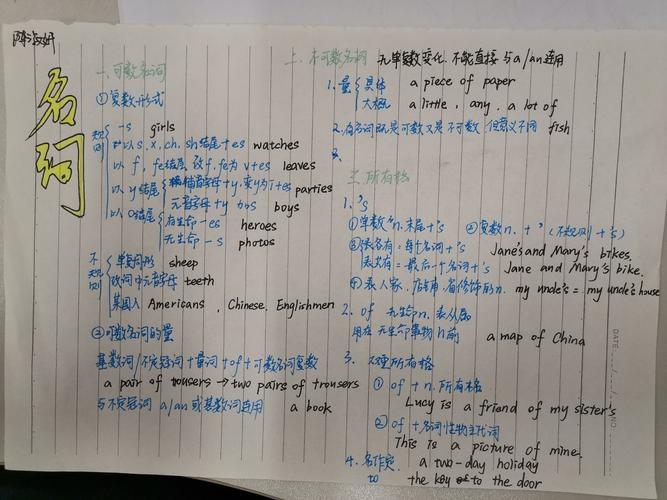 名词
一、可数名词
①复数形式
规则
-s girls
以s,x,ch,sh结尾+es watches
以f,fe结尾,改f,fe为v+es leaves
以y结尾 辅音字母+y,变y为i+es parties
元音字母+y 加s boys
以o结尾 有生命-es heroes
无生命-s photos
不规则
单复同形 sheep
改词中元音字母 teeth
某国人 Americans, Chinese, Englishmen
②可数名词的量
基数词/不定冠词+量词+of+可数名词复数
a pair of trousers → two pairs of trousers
与不定冠词a/an或基数词连用 a book
二、不可数名词 无单复数变化,不能直接与a/an连用
1.量 具体 a piece of paper
大概 a little, any, a lot of
2.有名词既是可数又是不可数 但意义不同 fish
3.
三、所有格
1. 's
①单数n.末尾+'s ②复数n.+' (不规则+'s)
③表各有:每个名词+'s Jane's and Mary's bikes.
表共有:最后一个名词+'s Jane and Mary's bike.
④表人家,店铺,省修饰的n. my uncle's = my uncle's house
2. of 无生命n.表从属
用在无生命事物n前 a map of China
3. 双重所有格
① of+n.所有格
Lucy is a friend of my sister's
② of+名词性物主代词
This is a picture of mine.
4. 名作定 a two-day holiday
to the key to the door
DATE